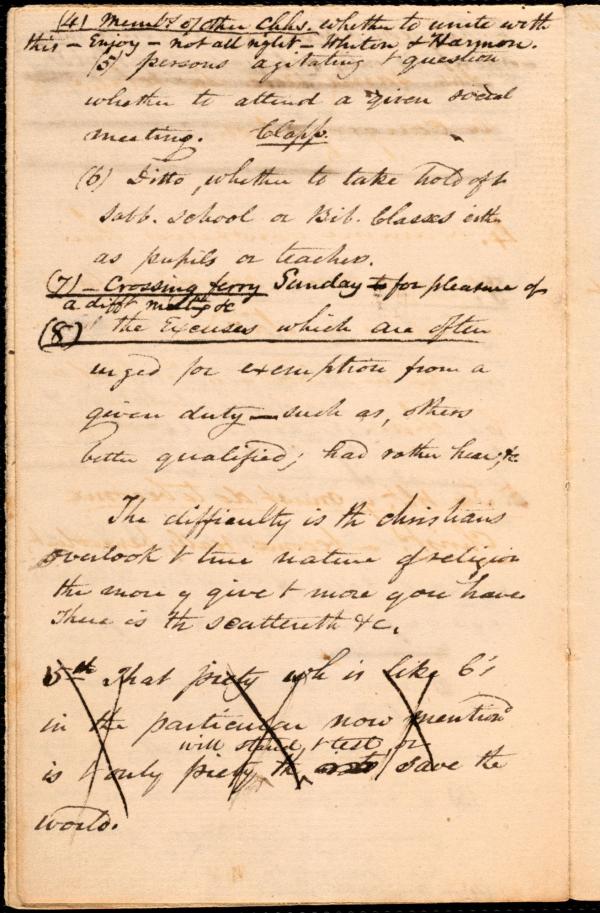 (4) Membrs of other Chhs. whether to unite with
this – Enjoy – not all right – Whiton & Harmon.
(5) persons agitating t question
whether to attend a given social
meeting. Clapp.
(6) Ditto, whether to take hold of t
Sabb. School or Bib. Classes eith
as pupils or teachers.
(7) – Crossing ferry Sunday to for pleasure of
a difft &c
(8) the Excuses which are often
urged for exemption from a
given duty – such as, others
better qualified; had rather hear, &c
The difficulty is th christians
overlook t true nature of religion
the more y give t more you have
There is th scattereth &c.
5th That piety wh is like C's
in the particular now mentiond
will stand t test, or
is t only piety th save the
world.